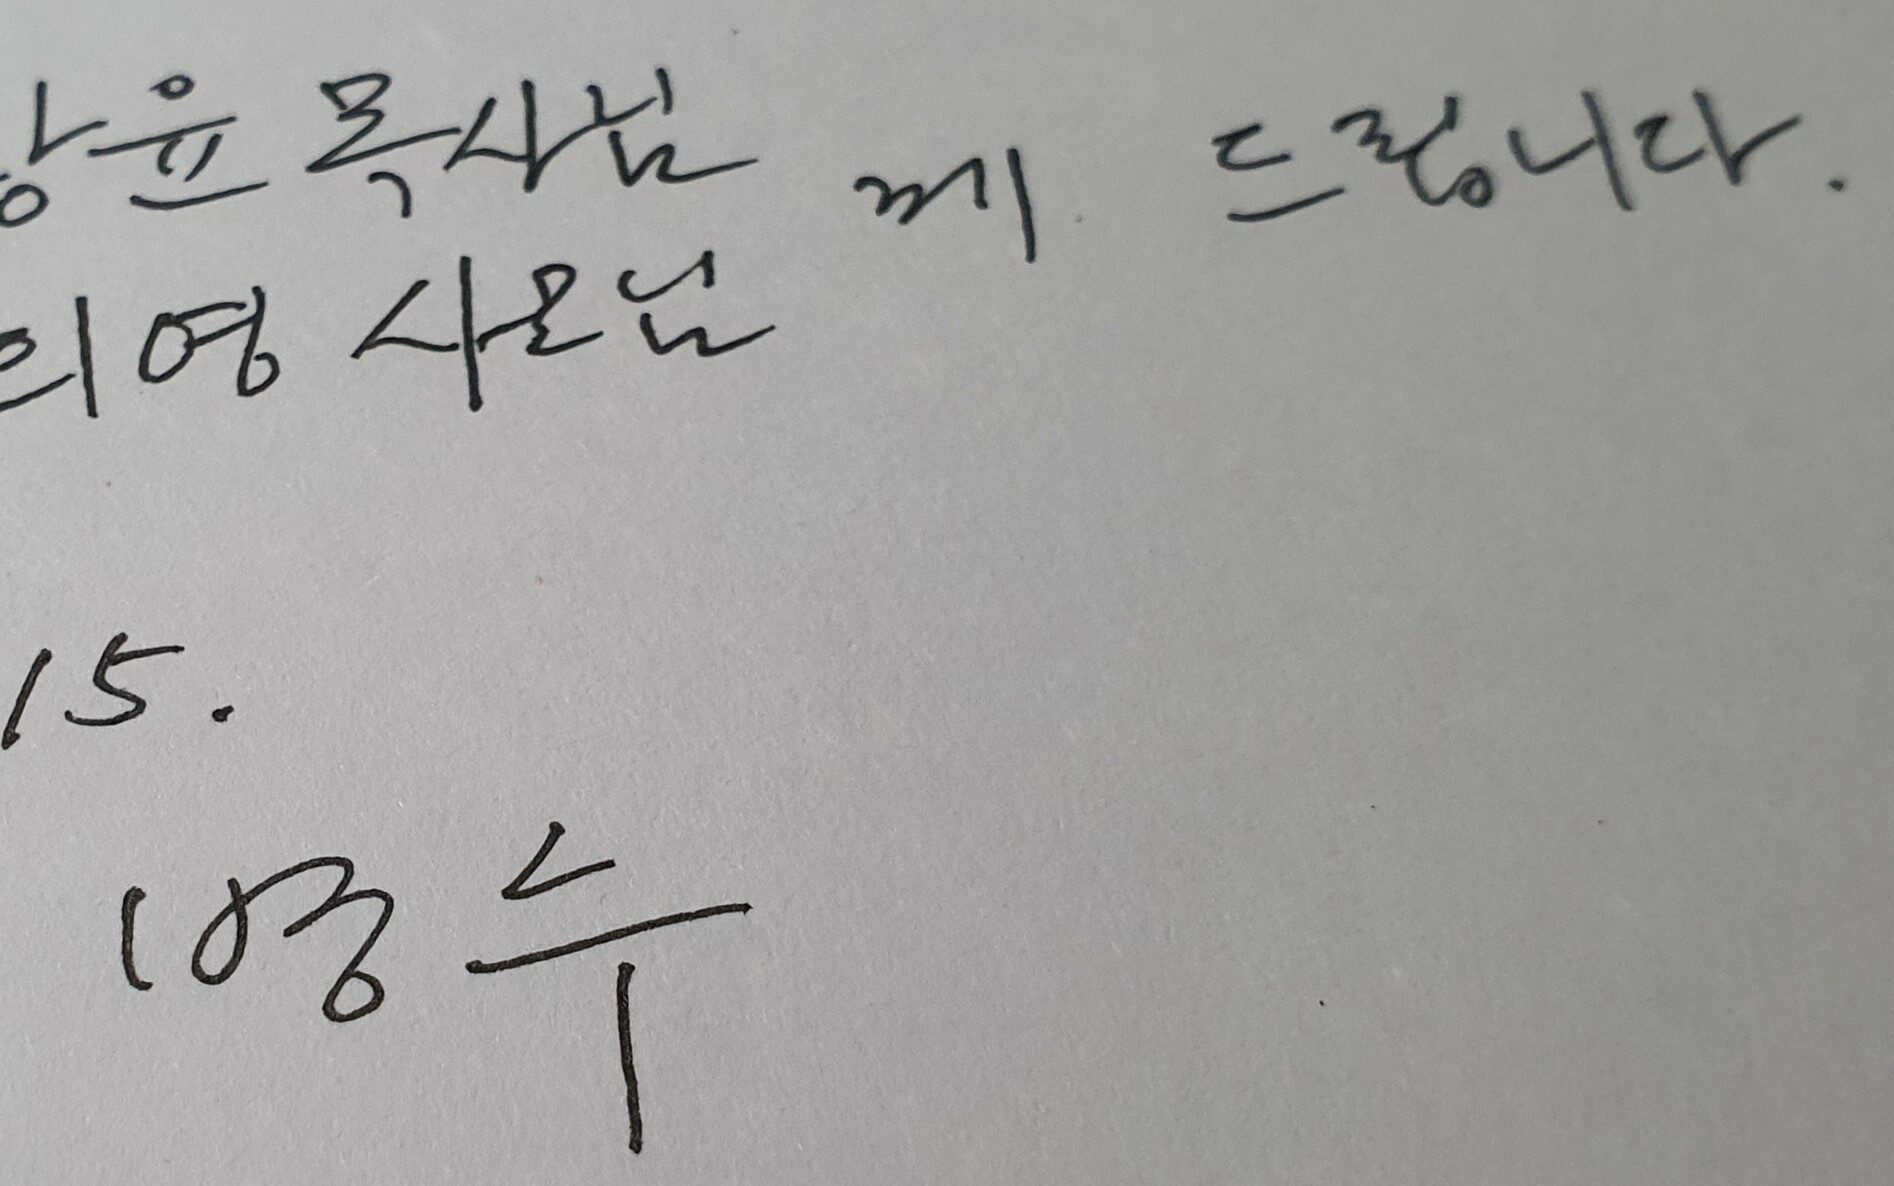 윤 목사님 께 드립니다.
영 사모님
15.
영수